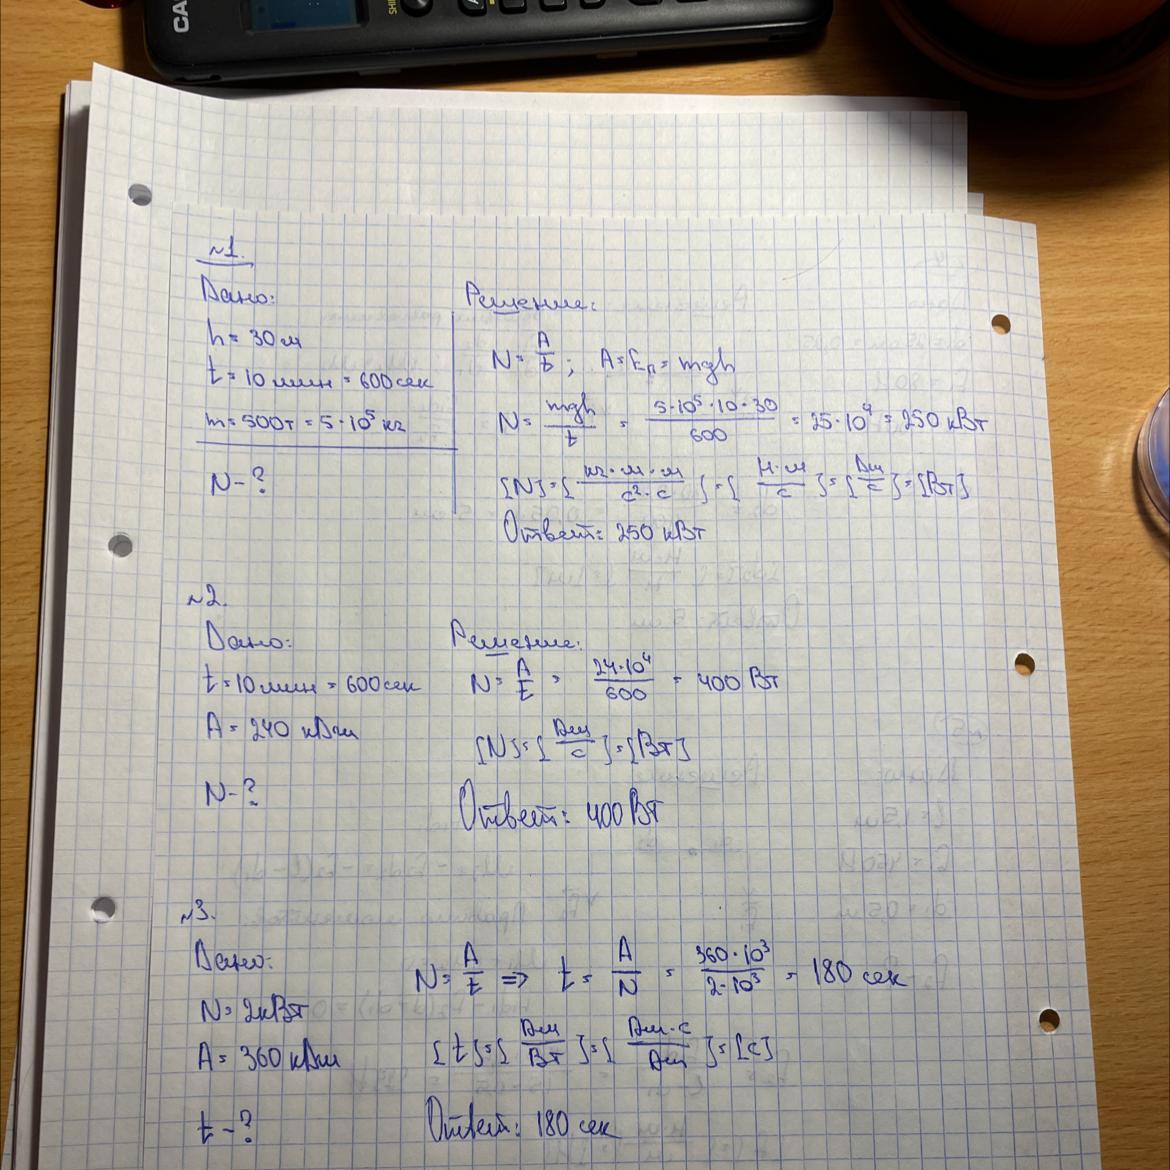 CA
SHI
№1.
Дано:
h = 30 м
t = 10 мин = 600 сек
m = 500т = 5·10⁵ кг
N - ?
Решение:
N = A/t ; A = Eп = mgh
N = mgh/t = 5·10⁵·10·30/600 = 25·10⁴ = 250 кВт
[N] = [кг·м·м/с²·с] = [Н·м/с] = [Дж/с] = [Вт]
Ответ: 250 кВт
№2.
Дано:
t = 10 мин = 600 сек
A = 240 кДж
N - ?
Решение:
N = A/t = 24·10⁴/600 = 400 Вт
[N] = [Дж/с] = [Вт]
Ответ: 400 Вт
№3.
Дано:
N = 2кВт
A = 360 кДж
t - ?
N = A/t => t = A/N = 360·10³/2·10³ = 180 сек
[t] = [Дж/Вт] = [Дж·с/Дж] = [с]
Ответ: 180 сек